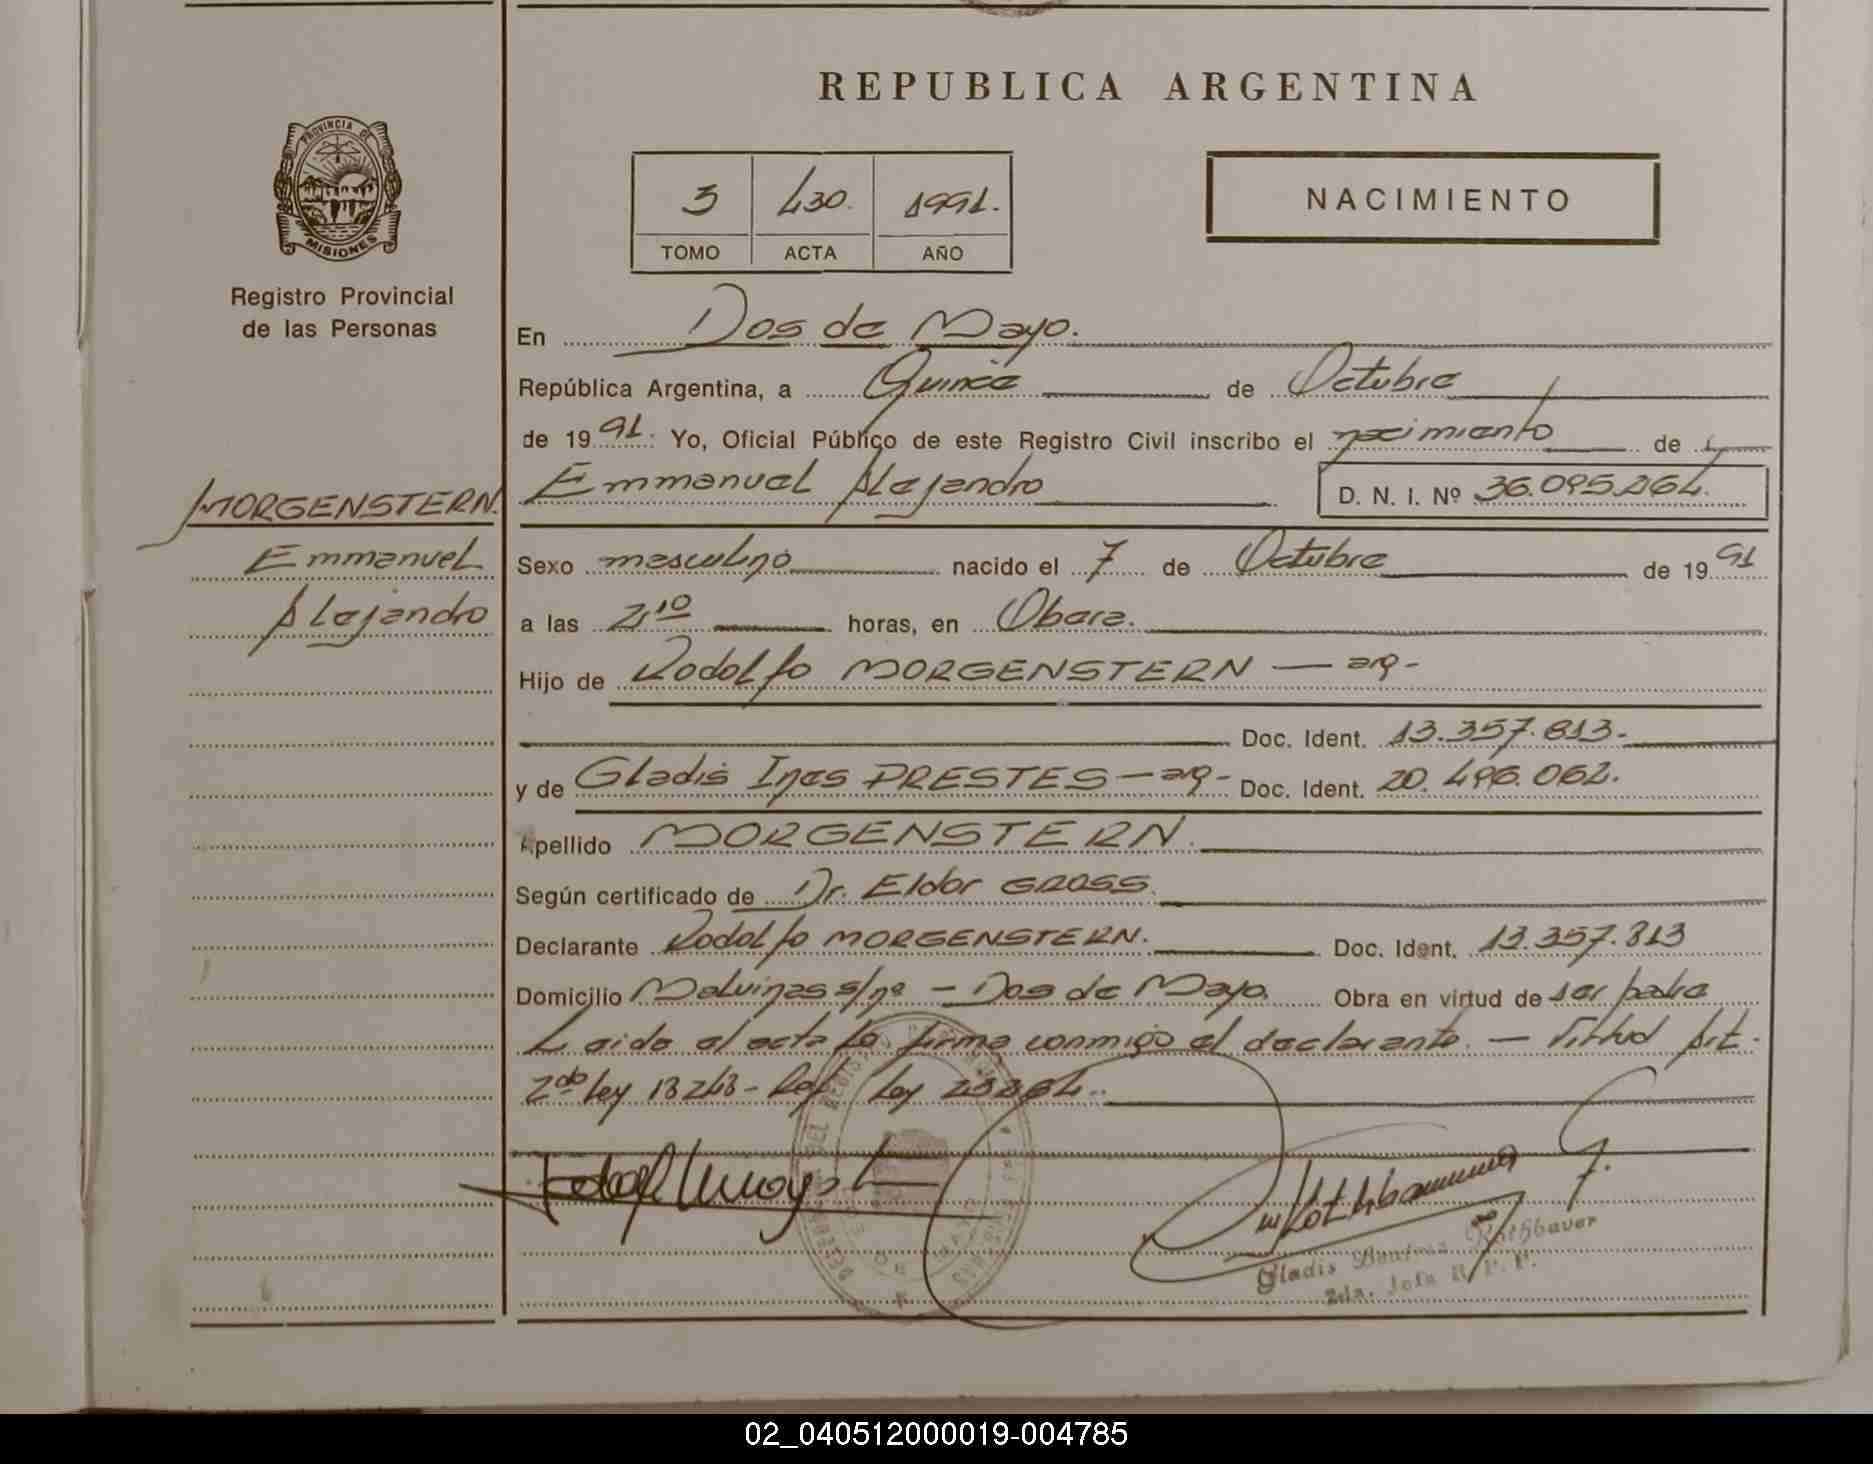 REPUBLICA ARGENTINA
PROVINCIA DE
MISIONES
Registro Provincial
de las Personas
3 430. 1991.
TOMO ACTA AÑO
NACIMIENTO
En Dos de Mayo.
República Argentina, a Quince de Octubre
de 1991: Yo, Oficial Público de este Registro Civil inscribo el nacimiento de
MORGENSTERN.
Emmanuel
Alejandro
Emmanuel Alejandro D. N. I. Nº 36.095.264.
Sexo masculino nacido el 7 de Octubre de 1991
a las 21¹⁰ horas, en Obera.
Hijo de Rodolfo MORGENSTERN — arg-
Doc. Ident. 13.357.813.-
y de Gladis Ines PRESTES — arg- Doc. Ident. 20.496.062.
Apellido MORGENSTERN.
Según certificado de Dr. Eldor GROSS.
Declarante Rodolfo MORGENSTERN. Doc. Ident. 13.357.813
Domicilio Malvinas s/nº - Dos de Mayo. Obra en virtud de ser padre
Leida el acta la firma conmigo el declarante. — Virtud Art.
2do ley 18248- Ref ley 23264.-
Gladis Beatriz Rothbauer
2da. Jefa R. P. P.
02_040512000019-004785